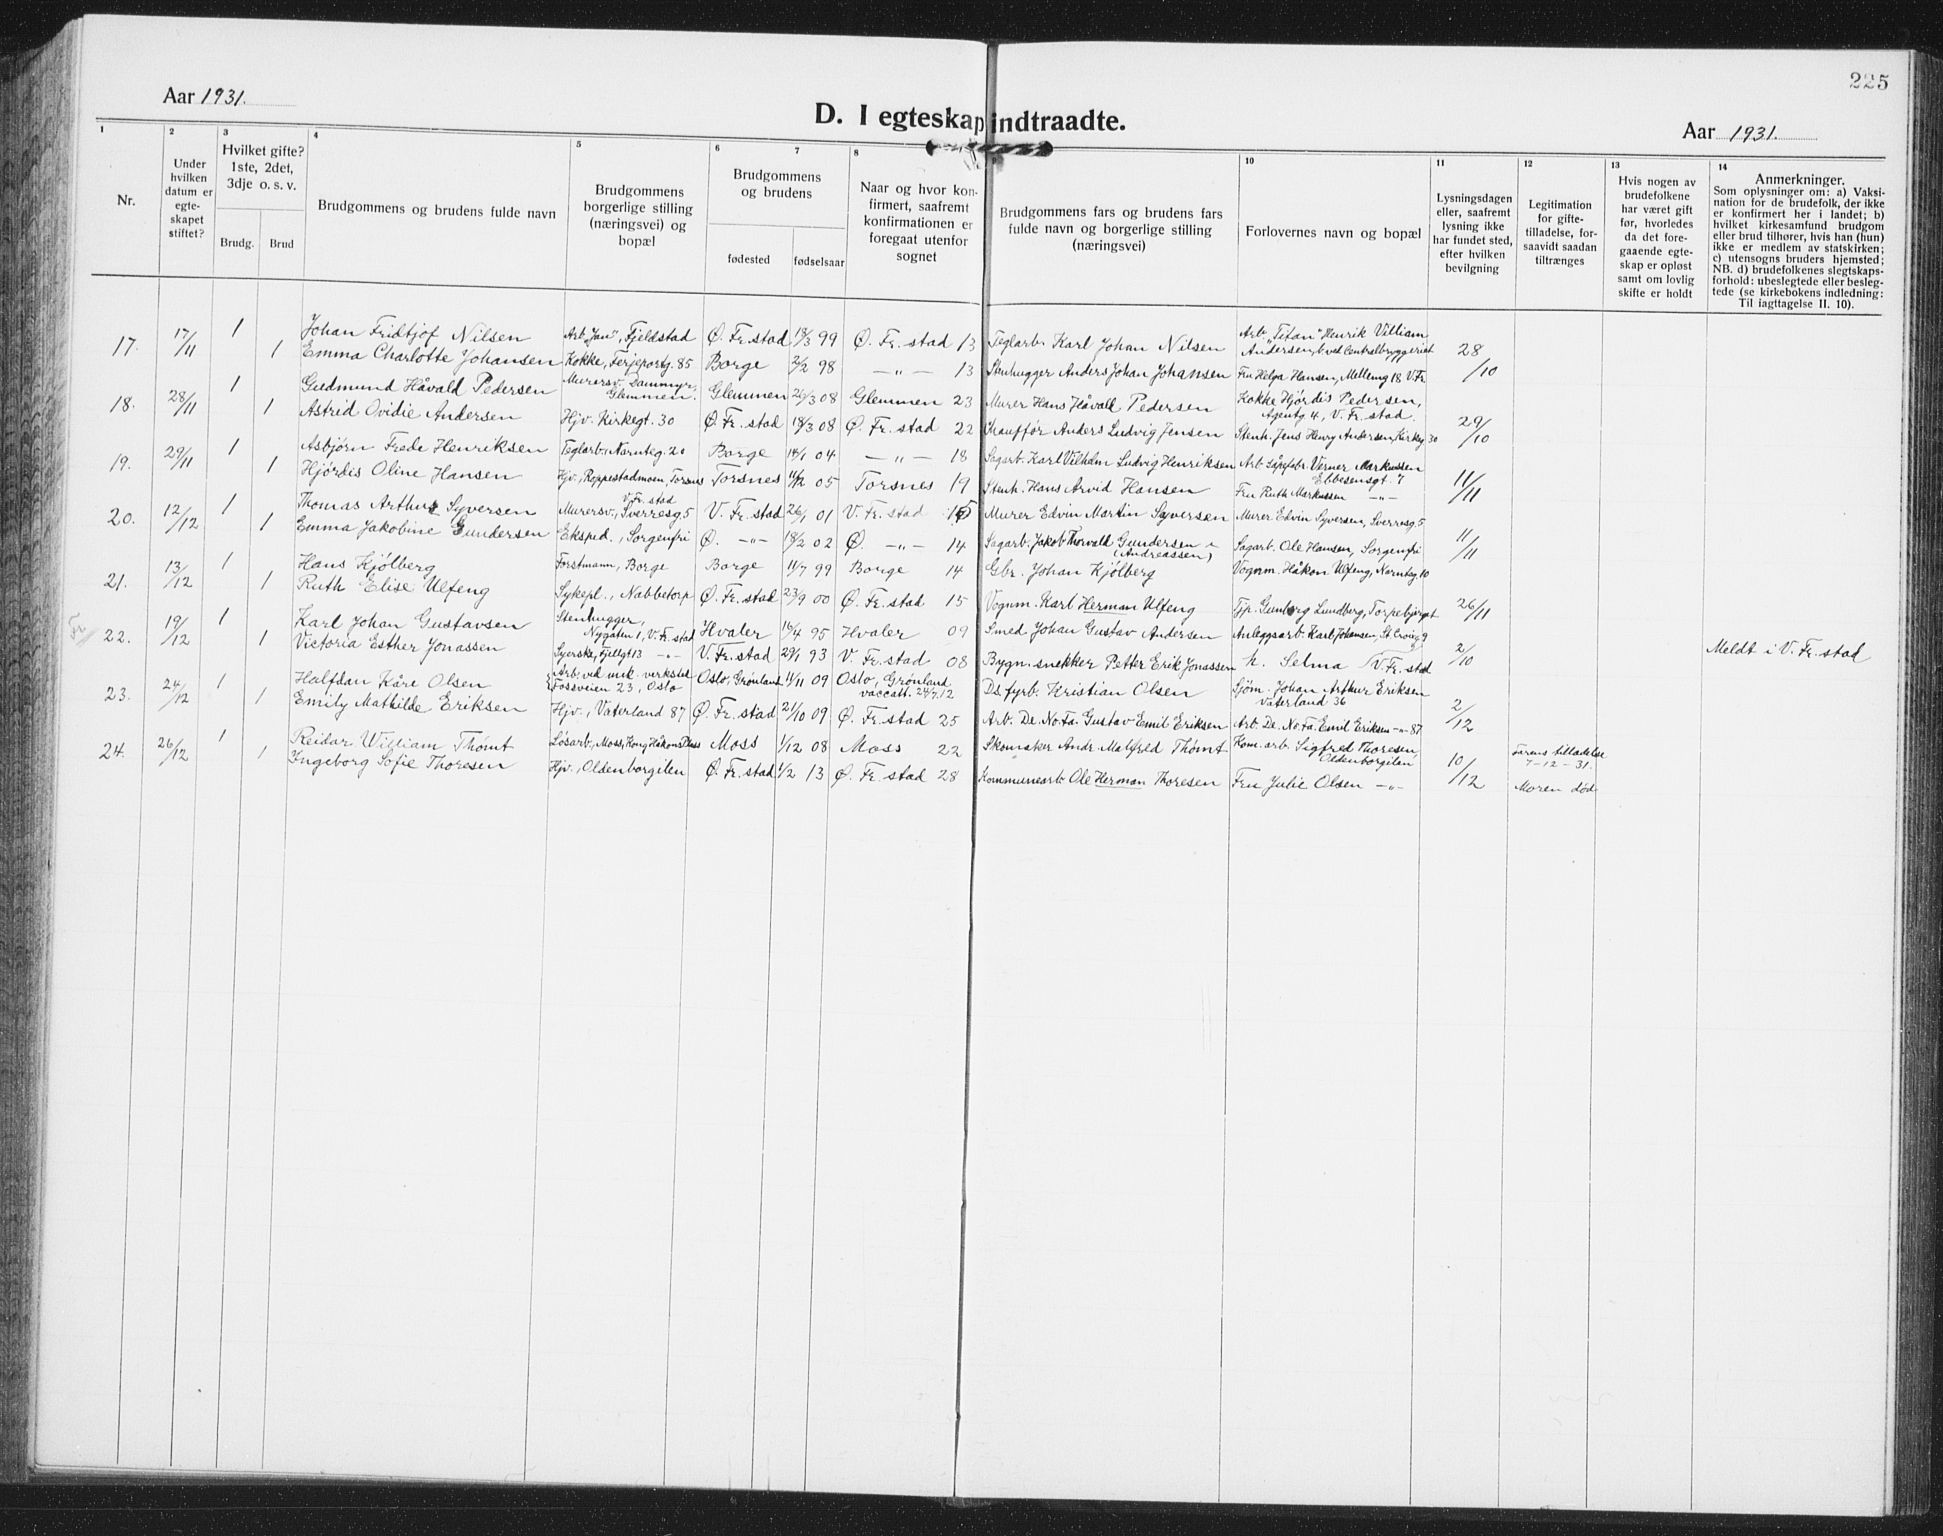 225
Aar 1931.
D. I egteskap indtraadte.
Aar 1931.
1 2 3 4 5 6 7 8 10 11 12 13 14
Nr.
Under hvilken datum er egte-skapet stiftet?
Hvilket gifte? 1ste, 2det, 3dje o. s. v.
Brudg. Brud
Brudgommens og brudens fulde navn
Brudgommens borgerlige stilling (næringsvei) og bopæl
Brudgommens og brudens
fødested fødselsaar
Naar og hvor kon-firmert, saafremt konfirmationen er foregaat utenfor sognet
Brudgommens fars og brudens fars fulde navn og borgerlige stilling (næringsvei)
Forlovernes navn og bopæl
Lysningsdagen eller, saafremt lysning ikke har fundet sted, efter hvilken bevilgning
Legitimation for gifte-tilladelse, for-saavidt saadan tiltrænges
Hvis nogen av brudefolkene har været gift før, hvorledes da det fore-gaaende egte-skap er opløst samt om lovlig skifte er holdt
Anmerkninger.
Som oplysninger om: a) Vaksi-nation for de brudefolk, der ikke er konfirmert her i landet; b) hvilket kirkesamfund brudgom eller brud tilhører, hvis han (hun) ikke er medlem av statskirken; c) utensogns bruders hjemsted; NB. d) brudefolkenes slegtskaps-forhold: ubeslegtede eller besleg-tede (se kirkebokens indledning: Til iagttagelse II. 10).
17. 17/11 1 Johan Fridtjof Nilsen Arb. "Jau", Fjeldstad Ø. Fr.stad 18/3 99 Ø. Fr. stad 13 Teglarb. Karl Johan Nilsen Arb. "Titan" Henrik Villiam Andersen, b. ved Centralbryggeriet 28/10
1 Emma Charlotte Johansen Kokke, Ferjeportg. 85 Borge 2/2 98 —"— 13 Stenhugger Anders Johan Johansen Fru Helga Hansen, Mellemg 18 V.Fr.
18. 28/11 1 Gudmund Håvald Pedersen Murersv. Dammyr, Glemmen. Glemmen 26/3 08 Glemmen 23 Murer Hans Håvald Pedersen Kokke Hjørdis Pedersen, Agentg 4, V. Fr. stad 29/10
1 Astrid Ovidie Andersen Hjv. Kirkegt. 30 Ø. Fr. stad 18/3 08 Ø. Fr. stad 22 Chauffør Anders Ludvig Jensen Stenh. Jens Henry Andersen, Kirkeg 30
19. 29/11 1 Asbjørn Frede Henriksen Teglarb. Narnteg. 20 Borge 14/1 04 —"— 18 Sagarb. Karl Vilhelm Ludvig Henriksen Arb. Såpefabr. Verner Markussen Ebbesensgt. 7 11/11
1 Hjørdis Oline Hansen Hjv., Roppestadmoen, Torsnes Torsnes 11/12 05 Torsnes 19 Stenh. Hans Arvid Hansen Fru Ruth Markussen —"—
20. 12/12 1 Thomas Arthur Syversen Murersv., Sverresg. 5 V. Fr. stad V. Fr. stad 26/1 01 V. Fr. stad 15 Murer Edvin Martin Syversen Murer Edvin Syversen, Sverresg. 5 11/11
1 Emma Jakobine Gundersen Eksped., Sorgenfri Ø. —"— 18/2 02 Ø. —"— 14 Sagarb. Jakob Thorvald Gundersen (Andreassen) Sagarb. Ole Hansen, Sorgenfri
21. 13/12 1 Hans Kjölberg Forstmann, Borge Borge 11/7 99 Borge 14 Gbr. Johan Kjölberg Vognm. Håkon Ulfeng, Narnteg. 10 26/11
1 Ruth Elise Ulfeng Sykepl., Nabbetorp Ø. Fr. stad 23/9 00 Ø. Fr. stad 15 Vognm. Karl Herman Ulfeng Tjp. Gunborg Lundberg, Torpebjerget
22. 19/12 1 Karl Johan Gustavsen Stenhugger, Nygaten 1, V. Fr. stad Hvaler 16/4 95 Hvaler 09 Smed Johan Gustav Andersen Anleggsarb. Karl Johansen, St. Croixg 9 2/10 Meldt i V. Fr. stad
1 Victoria Esther Jonassen Syerske, Fjellgt 13 —"— V. Fr. stad 29/1 93 V. Fr. stad 08 Bygn. snekker Petter Erik Jonassen h. Selma V. Fr. stad
23. 24/12 1 Halfdan Kåre Olsen Arb. ved mek. verksted Fossveien 23, Oslo Oslo, Grønland 14/11 09 Oslo, Grønland vaccatt. 24/7 12 Ds. fyrb. Kristian Olsen Sjöm. Johan Arthur Eriksen Vaterland 36 2/12
1 Emily Mathilde Eriksen Hjv., Vaterland 87 Ø. Fr. stad 21/10 09 Ø. Fr. stad 25 Arb. De. No. Fa. Gustav Emil Eriksen Arb. De. No. Fa. Emil Eriksen —"— 87
24. 26/12 1 Reidar William Thömt Lösarb., Moss, Kong Håkons Plass Moss 1/12 08 Moss 22 Skomaker Andr. Malfred Thömt Kom. arb. Sigfred Thoresen, Oldenborgilen 10/12 Farens tilladelse 7-12-31.
1 Ingeborg Sofie Thoresen Hjv., Oldenborgilen Ø. Fr. stad 1/2 13 Ø. Fr. stad 28 Kommunearb. Ole Herman Thoresen Fru Julie Olsen —"— Moren död